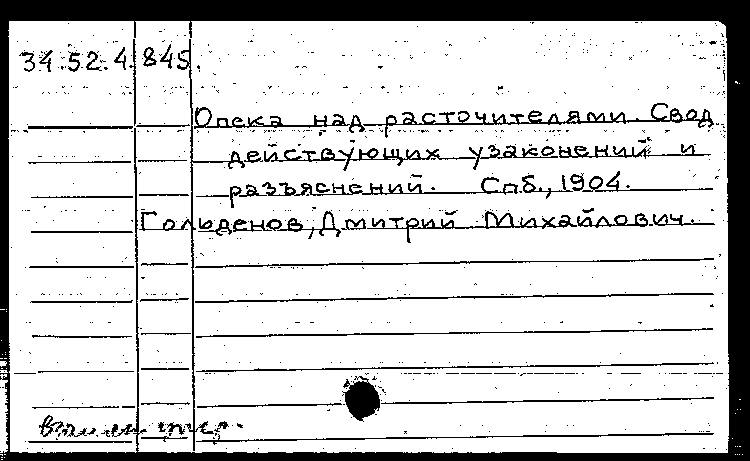 34.52.4.845.
Опека над расточителями. Свод
действующих узаконений и
разъяснений. Спб., 1904.
Гольденов, Дмитрий Михайлович.